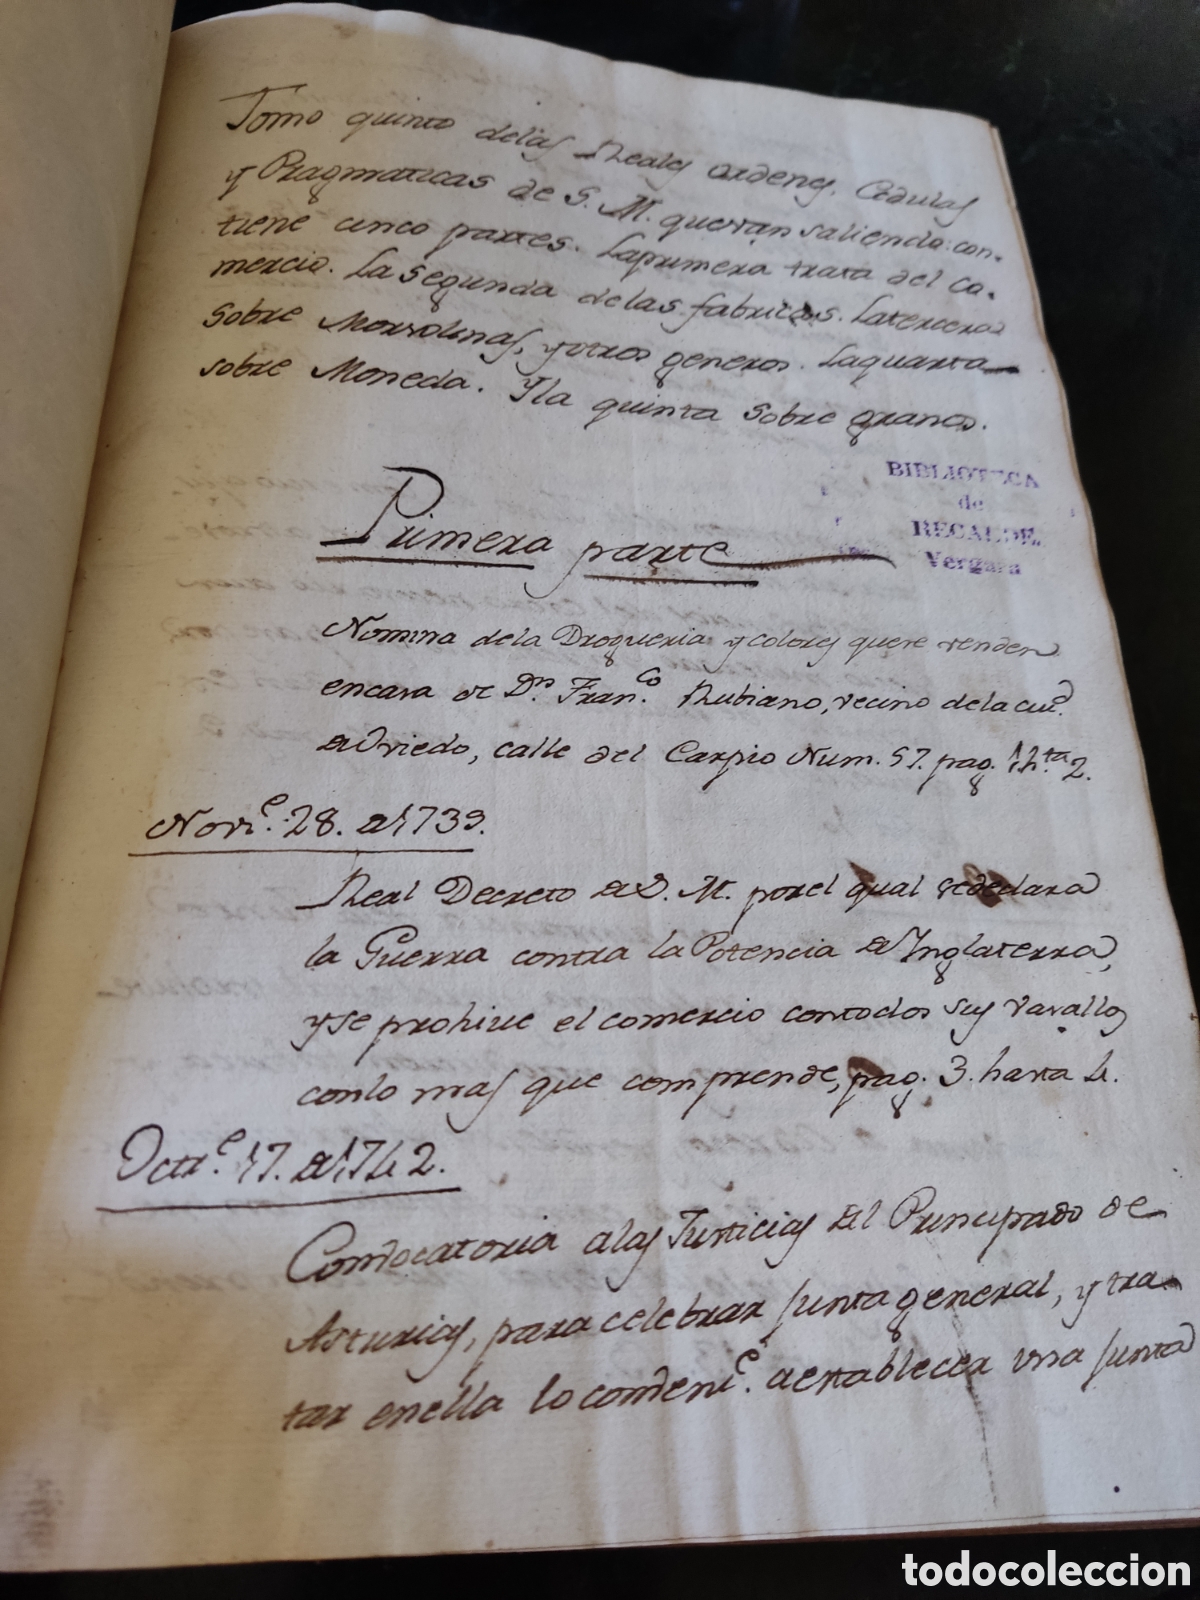 Tomo quinto delas Reales ordenes, Cedulas
y Pragmaticas de S. M. que van saliendo: con-
tiene cinco partes. La primera trata del Co-
mercio. La Segunda de las fabricas. La tercera
Sobre Mersolinas, y otros generos. La quarta
sobre Moneda. Y la quinta Sobre granos.
BIBLIOTECA
de
RECALDE
Vergara
Primera parte
Nomina dela Drogueria y colores que se venden
en casa de Dn. Franco. Rubiano, vecino dela ciud.
de Oviedo, calle del Carpio Num. 57. pag. 1 hta. 2.
Nove. 28. de 1739.
Real Decreto de S. M. por el qual se declara
la Guerra contra la Potencia de Inglaterra,
y se prohive el comercio con todos sus vasallos
con lo mas que comprende, pag. 3. hasta 4.
Octre. 17. de 1742.
Convocatoria a las Justicias del Principado de
Asturias, para celebrar Junta general, y tra-
tar en ella lo convente. a establecer una Junta
todocoleccion